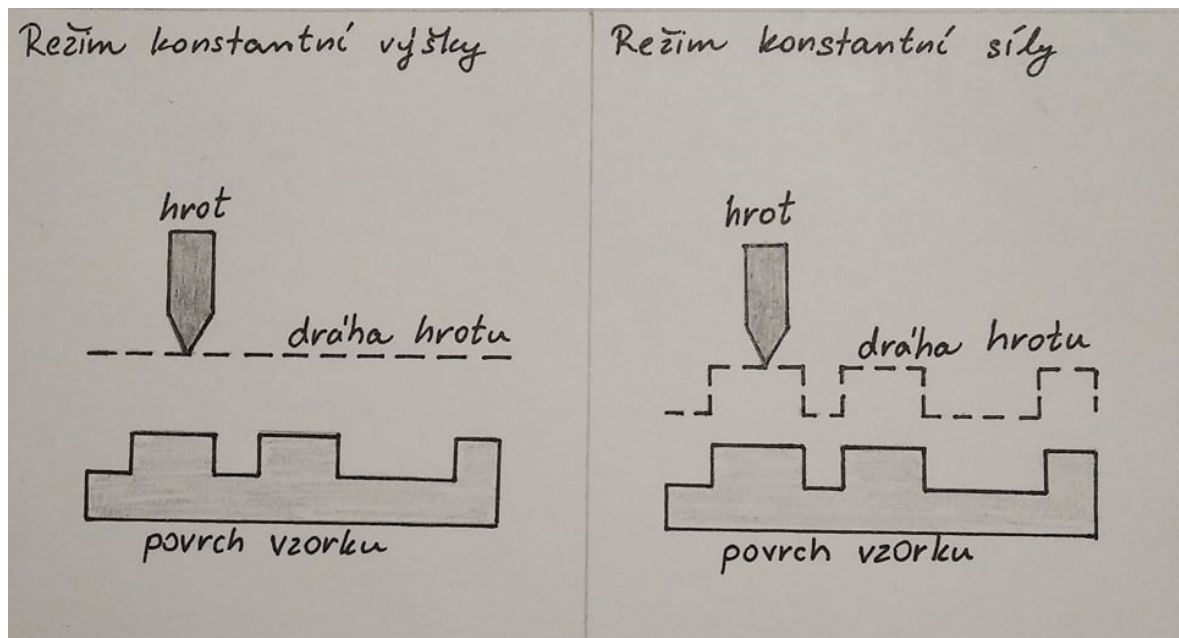 Režim konstantní výšky
hrot
dráha hrotu
povrch vzorku
Režim konstantní síly
hrot
dráha hrotu
povrch vzorku